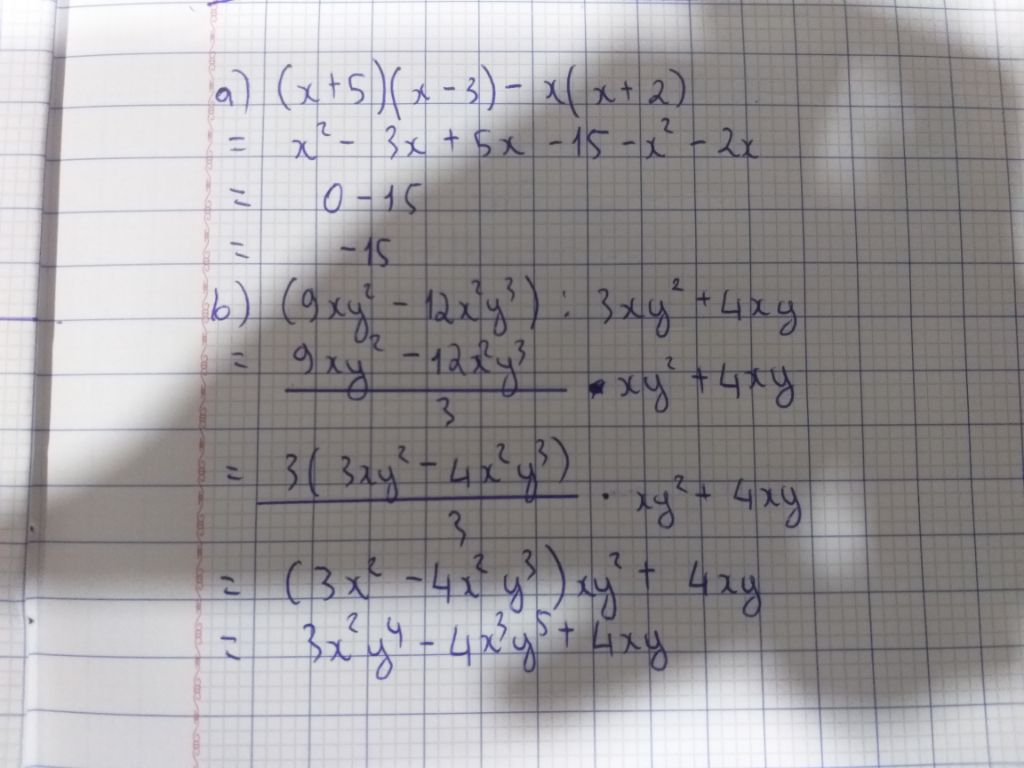 a) (x+5)(x-3) - x(x+2)
= x² - 3x + 5x - 15 - x² - 2x
= 0 - 15
= -15
b) (9xy² - 12x²y³) : 3xy² + 4xy
= (9xy² - 12x²y³)/3 · xy² + 4xy
= 3(3xy² - 4x²y³)/3 · xy² + 4xy
= (3x² - 4x²y³)xy² + 4xy
= 3x²y⁴ - 4x³y⁵ + 4xy